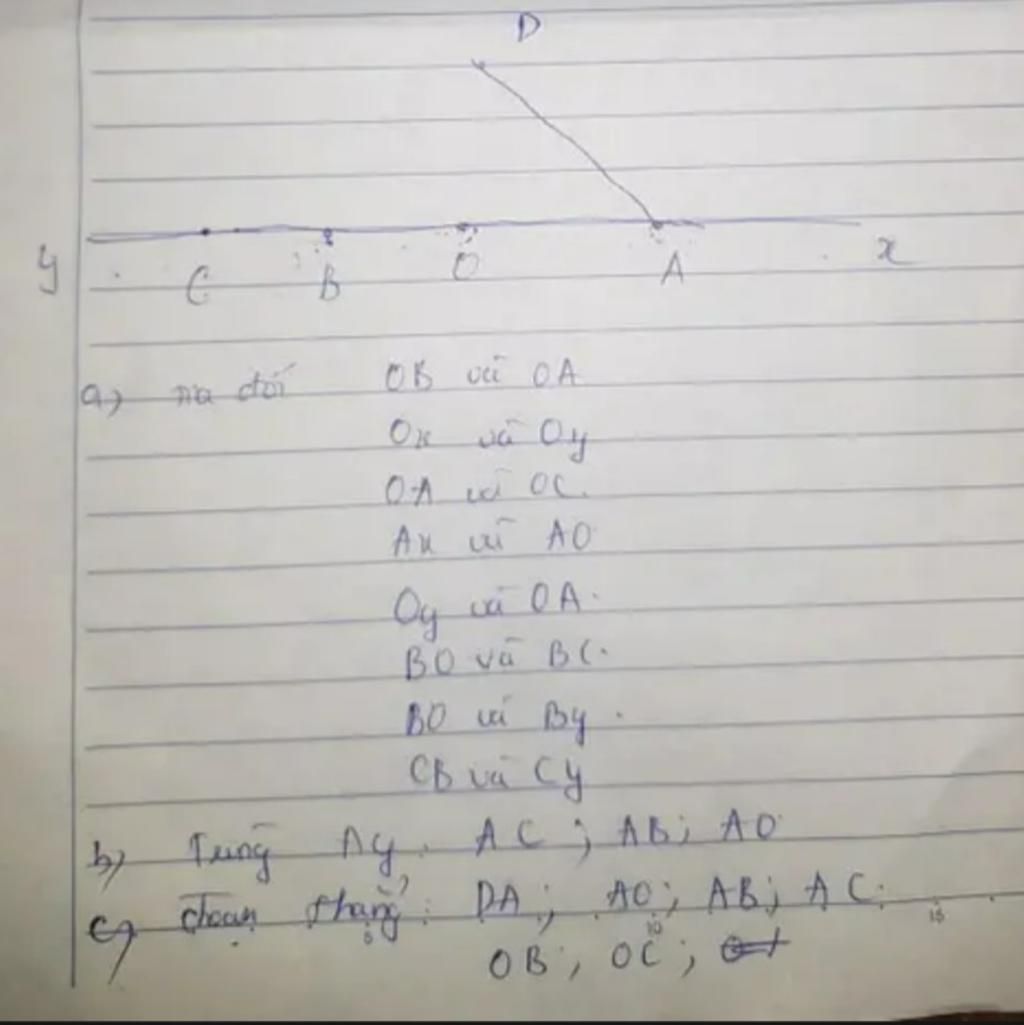 D
y C B O A x
a) Tia đối OB và OA
Ox và Oy
OA và OC.
Ax và AO
Oy và OA.
BO và BC.
BO và By.
CB và Cy
b) Trùng Ay, AC; AB; AO
c) đoạn thẳng: DA; AO; AB; AC.
5 10 15
OB; OC;